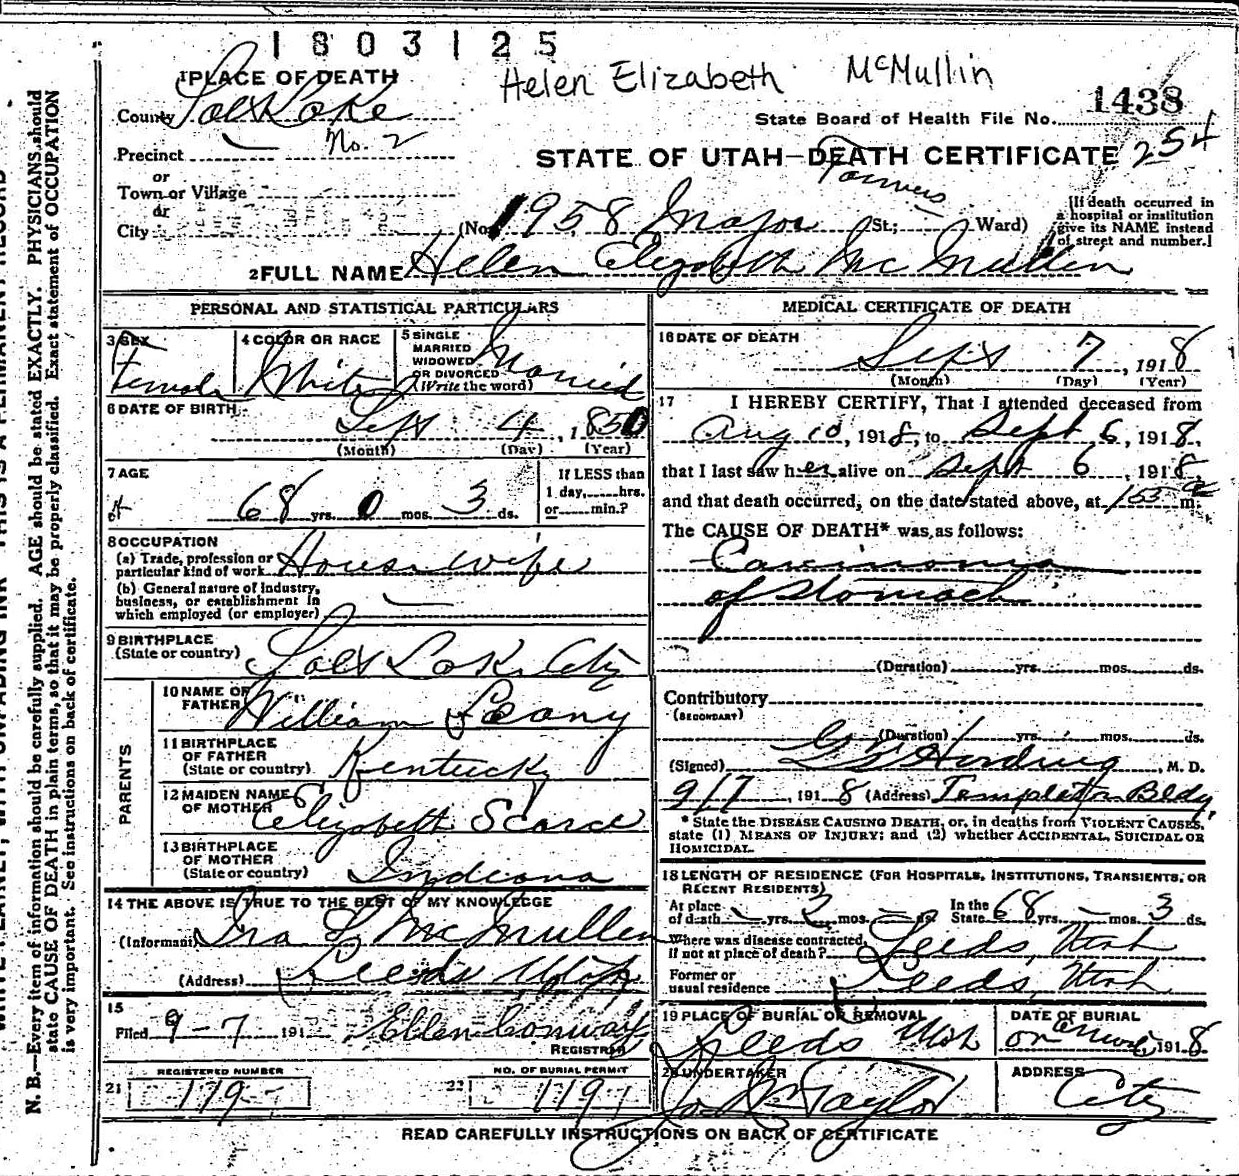 1803125
Helen Elizabeth McMullin
1 PLACE OF DEATH
1438
County Salt Lake
State Board of Health File No.
Precinct No. 2
STATE OF UTAH—DEATH CERTIFICATE 254
or
Town or Village
Farmers
or
City (No. 1958 Major St.; Ward)
[If death occurred in
a hospital or institution
give its NAME instead
of street and number.]
2 FULL NAME Helen Elizabeth McMullen
PERSONAL AND STATISTICAL PARTICULARS
3 SEX
Female
4 COLOR OR RACE
White
5 SINGLE
MARRIED
WIDOWED
OR DIVORCED
(Write the word)
Married
6 DATE OF BIRTH
Sept 4, 1850
(Month) (Day) (Year)
7 AGE
68 yrs. 0 mos. 3 ds.
If LESS than
1 day,......hrs.
or......min.?
8 OCCUPATION
(a) Trade, profession or
particular kind of work Housewife
(b) General nature of industry,
business, or establishment in
which employed (or employer)
9 BIRTHPLACE
(State or country) Salt Lake City
PARENTS
10 NAME OF
FATHER William Leany
11 BIRTHPLACE
OF FATHER
(State or country) Kentucky
12 MAIDEN NAME
OF MOTHER Elizabeth Scearce
13 BIRTHPLACE
OF MOTHER
(State or country) Indiana
14 THE ABOVE IS TRUE TO THE BEST OF MY KNOWLEDGE
(Informant) Ira L McMullen
(Address) Leeds Utah
15
Filed 9-7 191 Ellen Conway
REGISTRAR
REGISTERED NUMBER
21 179-
NO. OF BURIAL PERMIT
22 1191
MEDICAL CERTIFICATE OF DEATH
16 DATE OF DEATH
Sept 7, 1918
(Month) (Day) (Year)
17 I HEREBY CERTIFY, That I attended deceased from
Aug 10, 1918, to Sept 6, 1918,
that I last saw her alive on Sept 6, 1918
and that death occurred, on the date stated above, at 155 a m.
The CAUSE OF DEATH* was as follows:
Carcinoma
of Stomach
(Duration) yrs. mos. ds.
Contributory
(SECONDARY)
(Duration) yrs. mos. ds.
(Signed) Harding, M. D.
9/7, 1918 (Address) Templeton Bldg.
* State the DISEASE CAUSING DEATH, or, in deaths from VIOLENT CAUSES,
state (1) MEANS OF INJURY; and (2) whether ACCIDENTAL, SUICIDAL OR
HOMICIDAL.
18 LENGTH OF RESIDENCE (FOR HOSPITALS, INSTITUTIONS, TRANSIENTS, OR
RECENT RESIDENTS)
At place
of death - yrs. 2 mos. - ds.
In the
State 68 yrs. - mos. 3 ds.
Where was disease contracted,
if not at place of death? Leeds, Utah
Former or
usual residence Leeds, Utah
19 PLACE OF BURIAL OR REMOVAL
Leeds Utah
DATE OF BURIAL
on 1918
20 UNDERTAKER
Taylor
ADDRESS
City
READ CAREFULLY INSTRUCTIONS ON BACK OF CERTIFICATE
N. B.—Every item of information should be carefully supplied. AGE should be stated EXACTLY. PHYSICIANS should
state CAUSE OF DEATH in plain terms, so that it may be properly classified. Exact statement of OCCUPATION
is very important. See instructions on back of certificate.